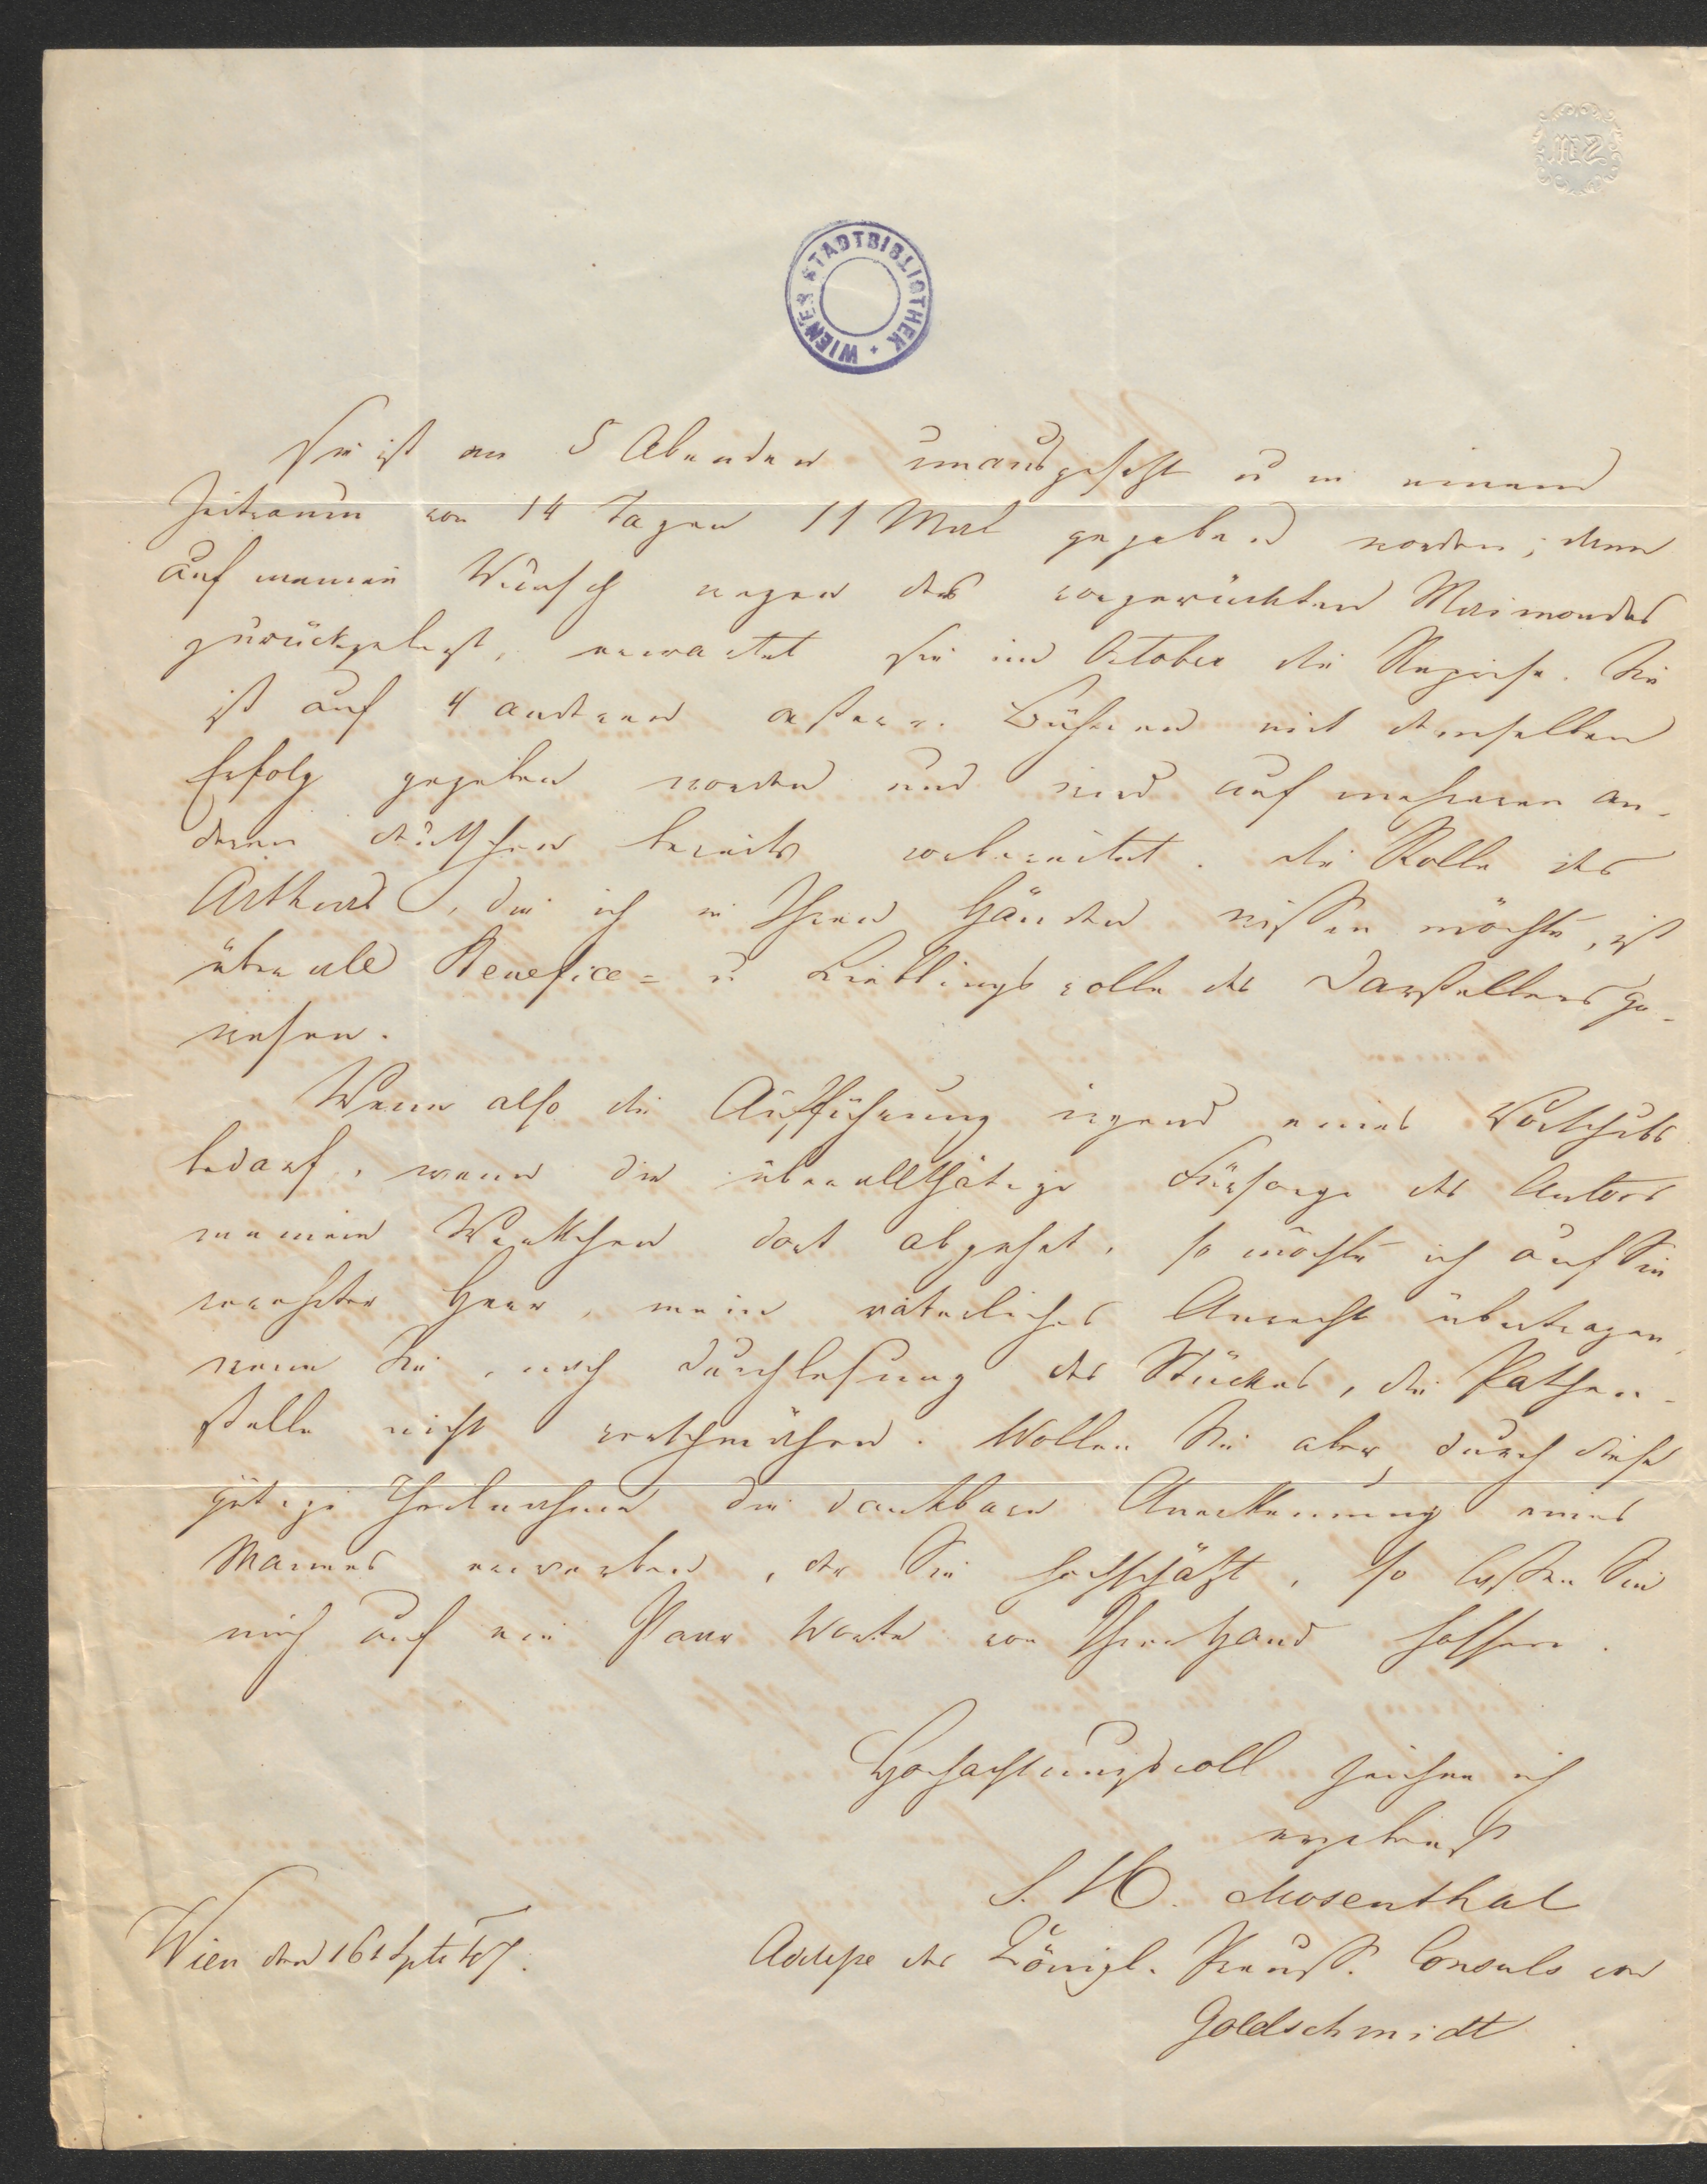 WIENER STADTBIBLIOTHEK
Sie ist an 5 Abenden unausgesetzt u in einem
Zeitraum von 14 Tagen 11 Mal gegeben worden; dann
auf meinen Wunsch wegen des vorgerückten Maimondes
zurückgelegt, erwartet sie im October die Reprise. Sie
ist auf 4 anderen österr. Bühnen mit demselben
Erfolg gegeben worden und wird auf mehreren an-
deren deutschen bereits vorbereitet. die Rolle des
Arthurs, die ich in Ihren Händen wissen möchte, ist
überall Benefice- u Lieblingsrolle des Darstellers ge-
wesen.
Wenn also die Aufführung irgend eines Vorschubs
bedarf, wenn die überallthätige Fürsorge des Autors
meinem Werkchen dort abgehet, so möchte ich auf Sie
verehrter Herr, mein väterliches Anrecht übertragen,
wenn Sie, nach Durchlesung des Stückes, die Pathen-
stelle nicht verschmähen. Wollen Sie aber durch diese
gütige Theilnahme die dankbare Anerkennung eines
Mannes erwerben, der Sie hochschätzt, so lassen Sie
mich auf ein Paar Worte von Ihrer Hand hoffen.
Hochachtungsvoll zeichne ich
ergebenst
S. H. Mosenthal
Wien den 16t Sptr 47.
Adresse des Königl. Preuß. Consuls von
Goldschmidt